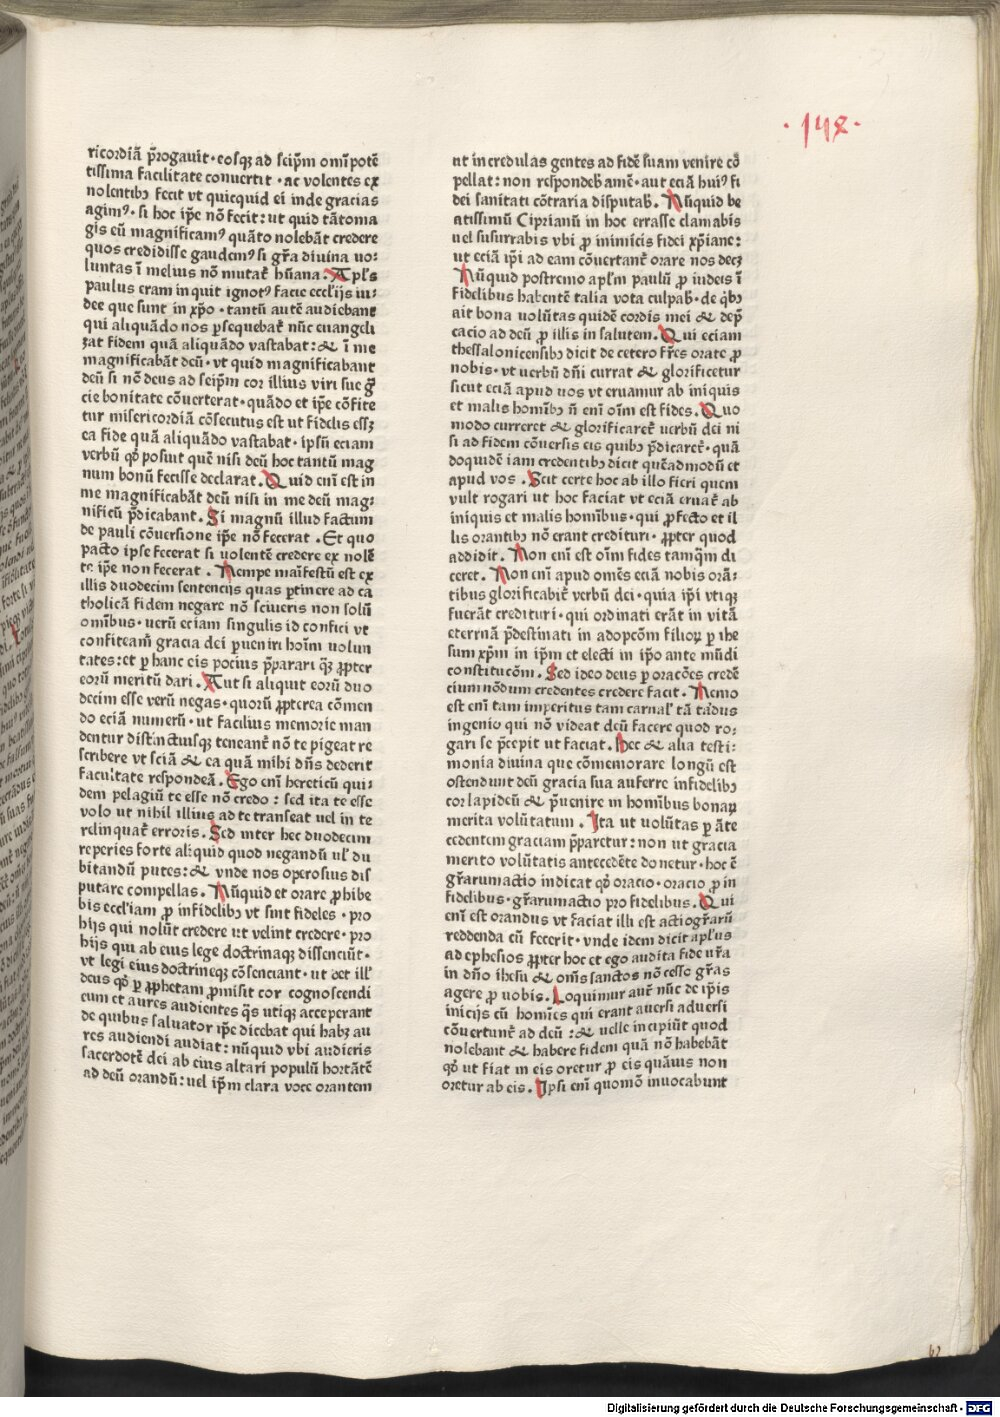 ·148·
ricordiā p̄rogauit·eosqꝫ ad seip̄m om̄ipotē
tissima facilitate conuertit·ac volentes ex
nolentibꝫ fecit vt quicquid ei inde gracias
agimꝰ·si hoc ip̄e nō fecit:ut quid tātoma
gis eū magnificamꝰ quāto nolebāt credere
quos credidisse gaudemꝰ si gr̄a diuina uo⸗
luntas ī melius nō mutat̄ hūana.Apl's
paulus eram in quit ignotꝰ facie eccl'ijs iu⸗
dee que sunt in xp̄o·tantū autē audiebant
qui aliquādo nos ꝑsequebat̄ nūc euangeli
ʒat fidem quā aliquādo vastabat:⁊ ī me
magnificabāt deū·vt quid magnificabant
deū si nō deus ad seip̄m cor illius viri sue gr̄
cie bonitate cōuerterat·quādo et ip̄e cōfite
tur misericordiā cōsecutus est ut fidelis essꝫ
ea fide quā aliquādo vastabat·ipsū eciam
verbū qꝙ posuit quē nisi deū hoc tantū mag
num bonū fecisse declarat.Quid em̄ est in
me magnificabāt deū nisi in me deū mag⸗
nificū p̄dicabant.Si magnū illud factum
de pauli cōuersione ip̄e nō fecerat.Et quo
pacto ipse fecerat si uolentē credere ex nolē
te ip̄e non fecerat.Nempe maīfestū est ex
illis duodecim sentencijs quas ꝑtinere ad ca
tholicā fidem negare nō sciueris non solū
om̄ibus·uerū eciam singulis id confici vt
confiteam̄ gracia dei p̄ueniri hoīm uolun
tates:et ꝑ hanc eis pocius p̄parari qꝫ ꝓpter
eorū meritū dari.Aut si aliquit eorū duo
decim esse verū negas·quorū ꝓpterea cōmen
do eciā numerū·ut facilius memorie man
dentur distinctiusqꝫ teneant̄ nō te pigeat re
scribere vt sciā ⁊ ea quā mihi dn̄s dederit
facultate respondeā.Ego em̄ hereticū qui⸗
dem pelagiū te esse nō credo:sed ita te esse
volo ut nihil illius ad te transeat uel in te
relinquat̄ erroris.Sed inter hec duodecim
reperies forte aliquid quod negandū ul' du
bitandū putes:⁊ vnde nos operosius dis
putare compellas.Nūquid et orare ꝓhibe
bis eccl'iam ꝓ infidelibꝫ vt sint fideles·pro
hijs qui nolūt credere ut velint credere·pro
hijs qui ab eius lege doctrinaqꝫ dissenciūt·
vt legi eius doctrineqꝫ cōsenciant·ut det ill'
deus qꝙ ꝑ ꝓphetam ꝓmisit cor cognoscendi
eum et aures audientes qs̄ utiqꝫ acceperant
de quibus saluator ip̄e dicebat qui habꝫ au
res audiendi audiat:nūquid vbi audieris
sacerdotē dei ab eius altari populū hortātē
ad deū orandū:uel ip̄m clara voce orantem
ut incredulas gentes ad fidē suam venire cō
pellat:non respondeb̄ amē·aut eciā huiꝰ fi
dei sanitati cōtraria disputab̄.Nūquid be
atissimū Ciprianū in hoc errasse clamabis
uel susurrabis vbi ꝓ inimicis fidei xp̄iane:
ut eciā ip̄i ad eam cōuertant̄ orare nos docꝫ
Nūquid postremo apl'm paulū ꝓ iudeis ī
fidelibus habentē talia vota culpab̄·de qb̄ꝫ
ait bona uolūtas quidē cordis mei ⁊ dep̄
cacio ad deū ꝓ illis in salutem.Qui eciam
thessalonicensibꝫ dicit de cetero fr̄es orate ꝓ
nobis·vt uerbū dn̄i currat ⁊ glorificetur
sicut eciā apud uos vt eruamur ab iniquis
et malis homībꝫ n̄ em̄ oīm est fides.Quo
modo curreret ⁊ glorificaret̄ uerbū dei ni
si ad fidem cōuersis eis quibꝫ p̄dicaret̄·quā
doquidē iam credentibꝫ dicit quēadmodū et
apud vos.Scit certe hoc ab illo fieri quem
vult rogari ut hoc faciat vt eciā eruat̄ ab
iniquis et malis homībus·qui ꝓfecto et il
lis orantibꝫ nō erant credituri·ꝓpter quod
addidit.Non em̄ est oīm fides tamqꝫ di
ceret.Non em̄ apud omēs eciā nobis orā⸗
tibus glorificabit̄ verbū dei·quia ip̄i vtiqꝫ
fuerāt credituri·qui ordinati erāt in vitā
eterrnā p̄destinati in adopcōm filioꝝ ꝑ ihe
sum xp̄m in ip̄m et electi in ip̄o ante mūdi
constitucōm.Sed ideo deus ꝑ oracōes credē
cium nōdum credentes credere facit.Nemo
est em̄ tam imperitus tam carnal' tā tardus
ingenio qui nō videat deū facere quod ro⸗
gari se p̄cepit ut faciat.Hec ⁊ alia testi⸗
monia diuina que cōmemorare longū est
ostendunt deū gracia sua auferre infidelibꝫ
cor lapideū ⁊ p̄uenire in homībus bonaꝝ
merita volūtatum.Ita ut uolūtas ꝑ āte
cedentem graciam p̄paretur:non ut gracia
merito volūtatis antecedēte donetur·hoc ē
gr̄arumactio indicat qꝙ oracio·oracio ꝓ in
fidelibus·gr̄arumactio pro fidelibus.Qui
em̄ est orandus vt faciat illi est actiogr̄arū
reddenda cū fecerit·vnde idem dicit apl'us
ad ephesios ꝓpter hoc et ego audita fide ur̄a
in dn̄o ihesu ⁊ om̄s sanctos nō cesso gr̄as
agere ꝓ uobis.Loquimur aut̄ nūc de ip̄is
inicijs cū homīes qui erant auersi aduersi
cōuertunt̄ ad deū:⁊ uelle incipiūt quod
nolebant ⁊ habere fidem quā nō habebāt
qꝙ ut fiat in eis oretur ꝓ eis quāuis non
oretur ab eis.Ipsi em̄ quomō inuocabunt
62
Digitalisierung gefördert durch die Deutsche Forschungsgemeinschaft - DFG